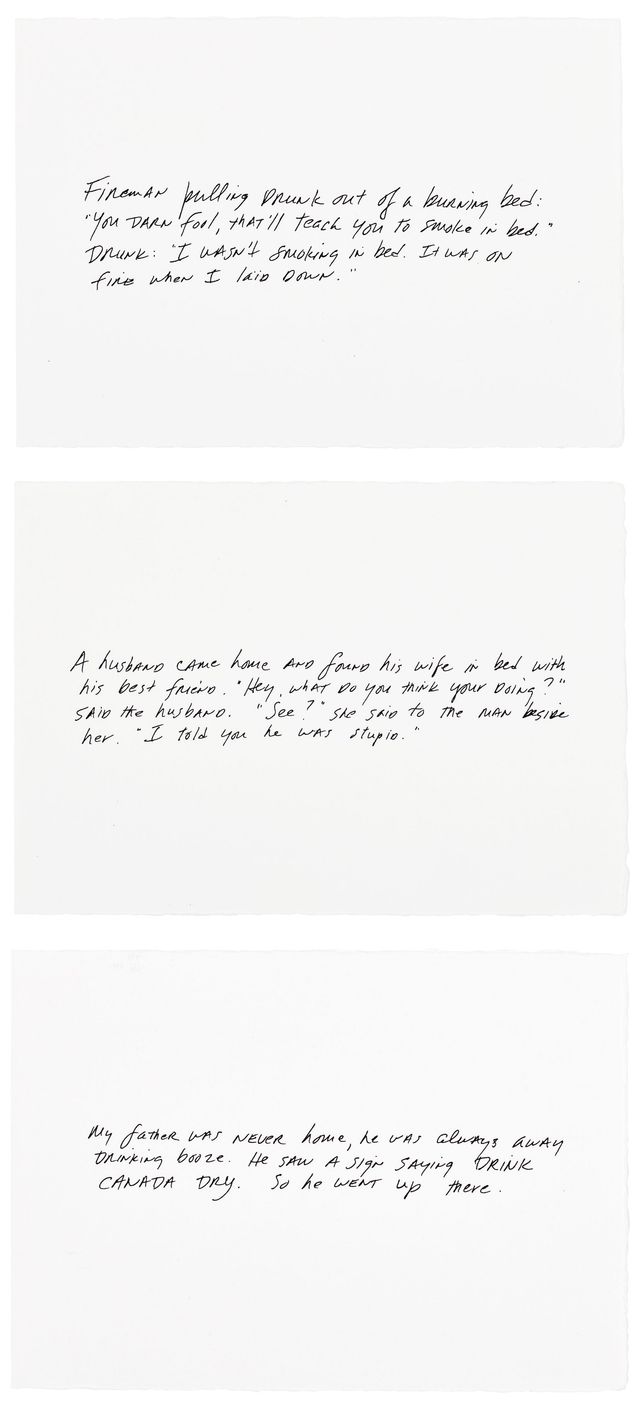 Fireman pulling Drunk out of a burning bed:
"You DARN fool, that'll teach you to smoke in bed."
Drunk: "I wasn't smoking in bed. It was on
fire when I laid down."
A husband came home and found his wife in bed with
his best friend. "Hey, what do you think your doing?"
said the husband. "See?" she said to the man beside
her. "I told you he was stupid."
My father was never home, he was always away
drinking booze. He saw a sign saying DRINK
CANADA DRY. So he went up there.